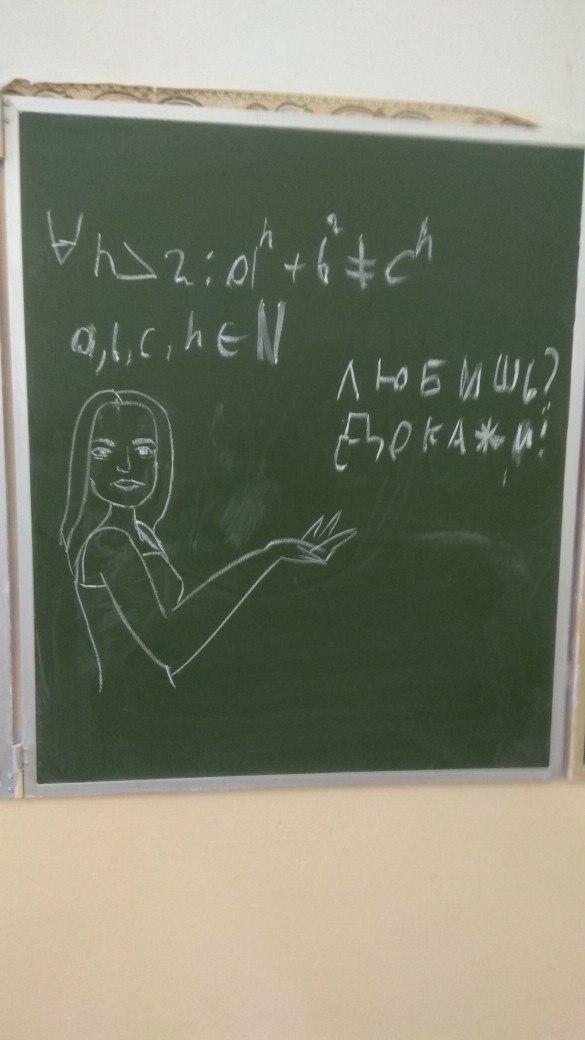 ∀ n>2: aⁿ + b² ≠ cⁿ
a, b, c, n ∈ ℕ
ЛЮБИШЬ?
ДОКАЖИ!